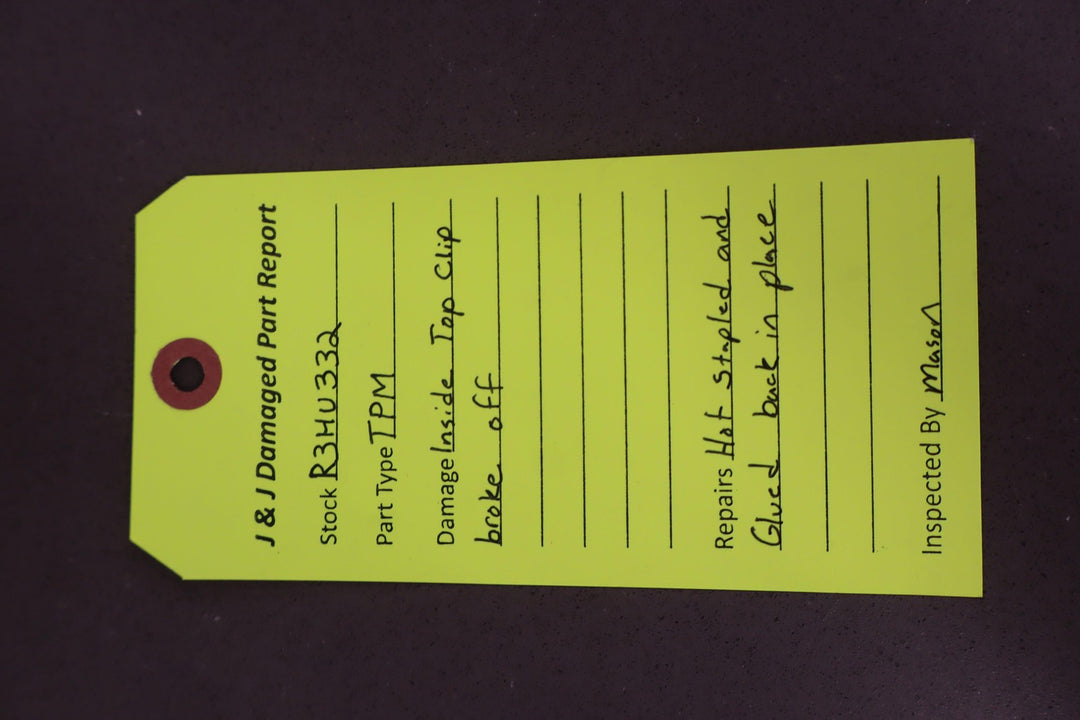 J & J Damaged Part Report
Stock R3HU332
Part Type TPM
Damage Inside Top Clip
broke off
Repairs Hot stapled and
Glued back in place
Inspected By Mason